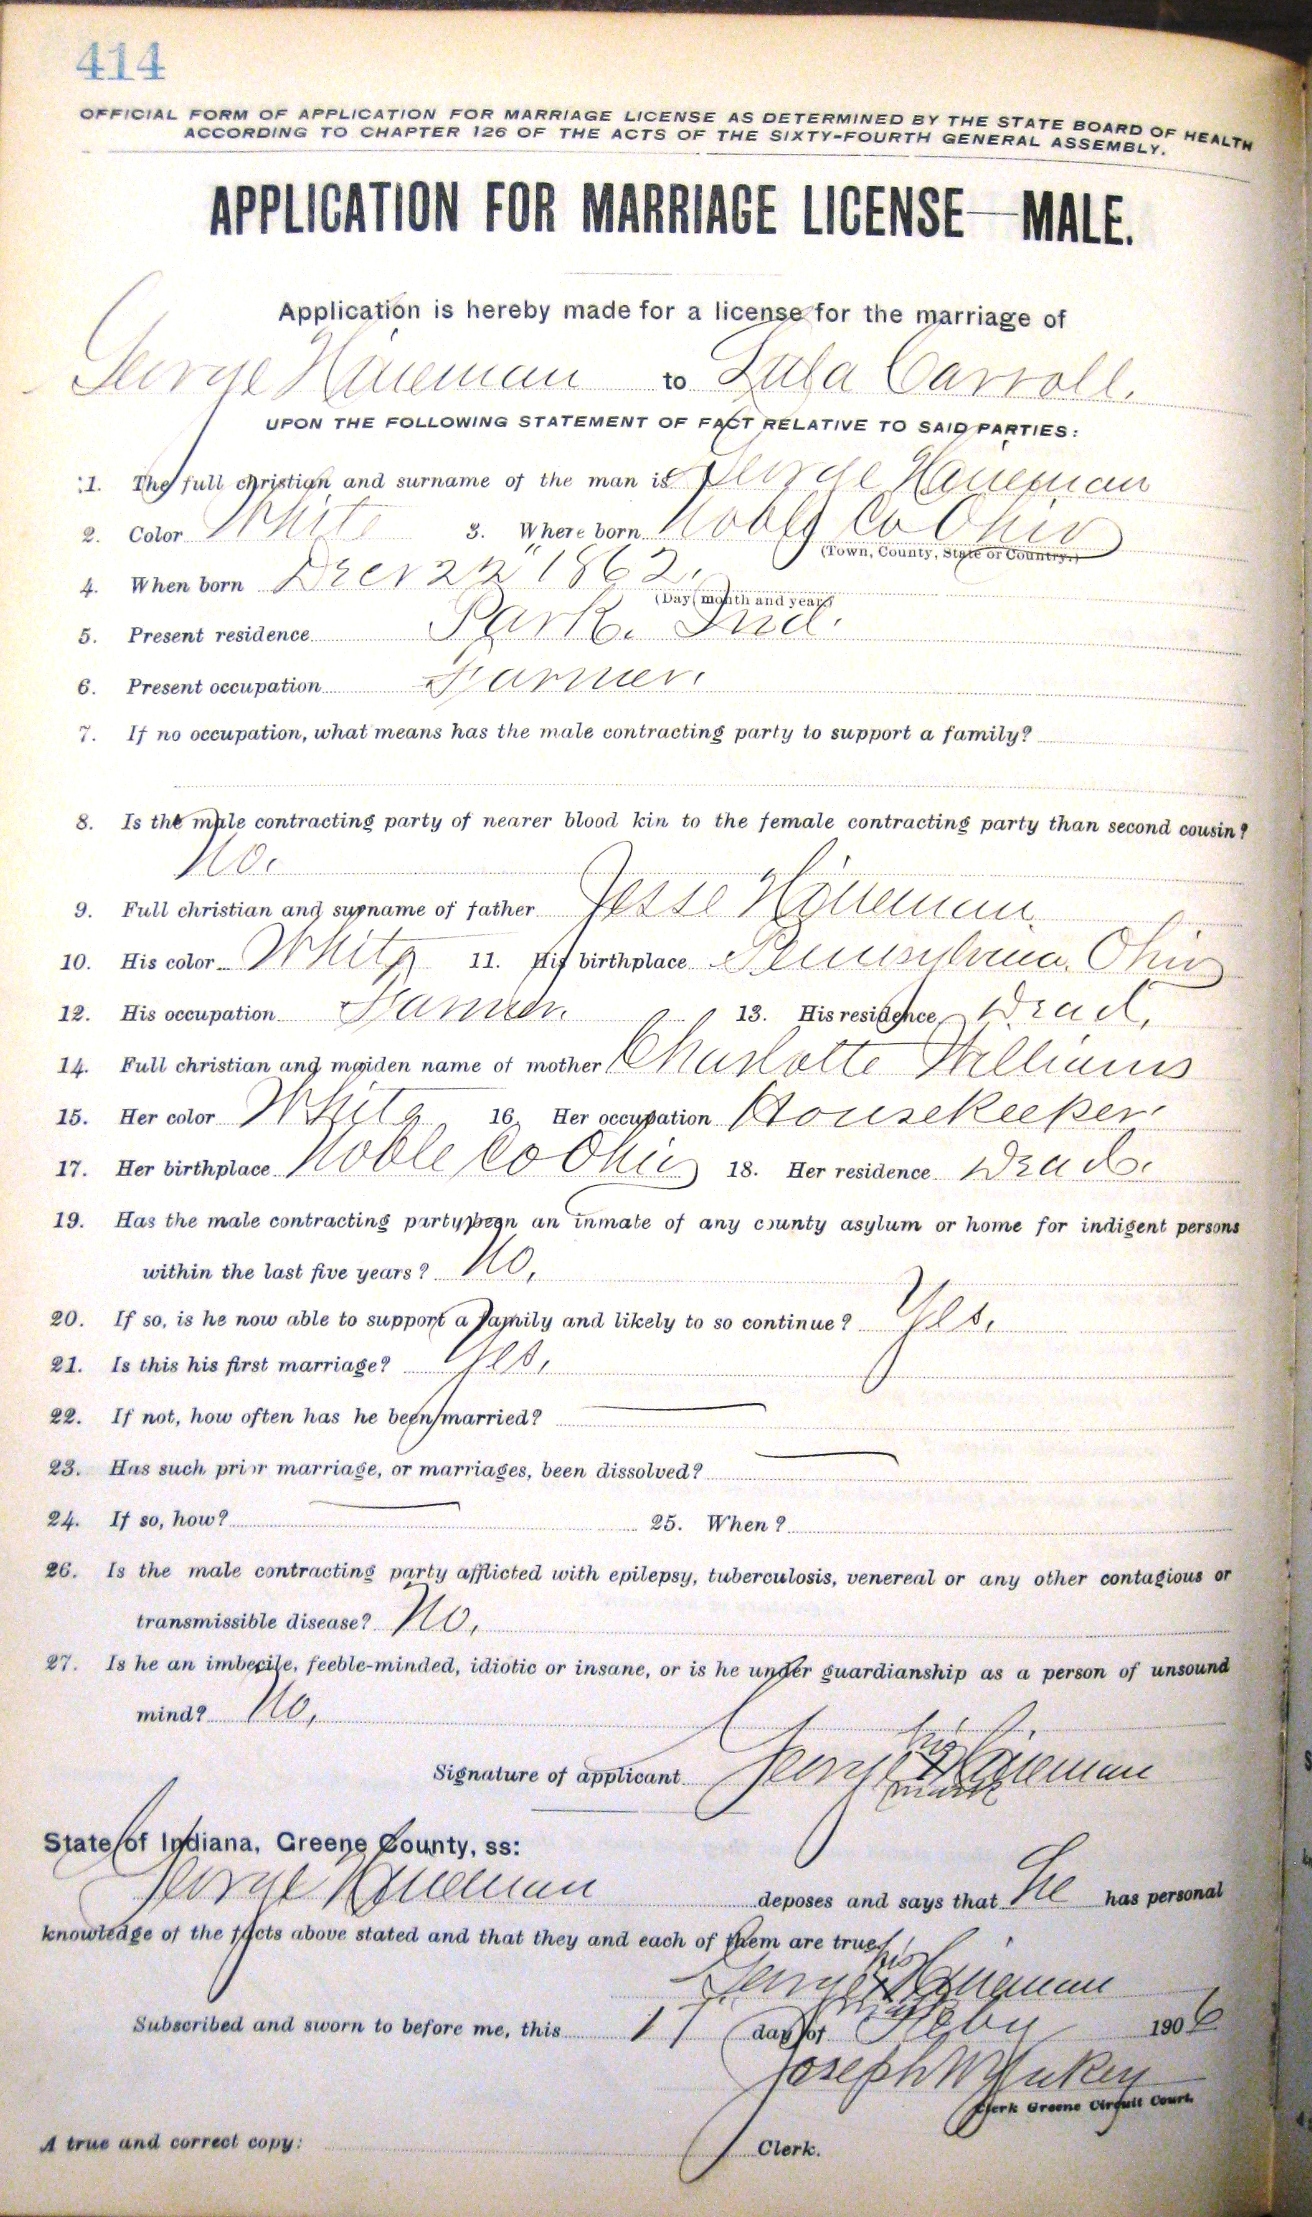 414
OFFICIAL FORM OF APPLICATION FOR MARRIAGE LICENSE AS DETERMINED BY THE STATE BOARD OF HEALTH
ACCORDING TO CHAPTER 126 OF THE ACTS OF THE SIXTY-FOURTH GENERAL ASSEMBLY.
APPLICATION FOR MARRIAGE LICENSE—MALE.
Application is hereby made for a license for the marriage of
George Hineman to Lula Carroll.
UPON THE FOLLOWING STATEMENT OF FACT RELATIVE TO SAID PARTIES:
1. The full christian and surname of the man is George Hineman
2. Color White 3. Where born Noble Co Ohio
(Town, County, State or Country.)
4. When born Decr 22" 1862.
(Day, month and year)
5. Present residence Park. Ind.
6. Present occupation Farmer.
7. If no occupation, what means has the male contracting party to support a family?
8. Is the male contracting party of nearer blood kin to the female contracting party than second cousin?
No.
9. Full christian and surname of father Jesse Hineman
10. His color White 11. His birthplace Ohio
12. His occupation Farmer. 13. His residence Dead.
14. Full christian and maiden name of mother Charlotte Williams
15. Her color White 16. Her occupation Housekeeper.
17. Her birthplace Noble Co Ohio 18. Her residence Dead.
19. Has the male contracting party been an inmate of any county asylum or home for indigent persons
within the last five years? No,
20. If so, is he now able to support a family and likely to so continue? Yes.
21. Is this his first marriage? Yes,
22. If not, how often has he been married?
23. Has such prior marriage, or marriages, been dissolved?
24. If so, how? 25. When?
26. Is the male contracting party afflicted with epilepsy, tuberculosis, venereal or any other contagious or
transmissible disease? No,
27. Is he an imbecile, feeble-minded, idiotic or insane, or is he under guardianship as a person of unsound
mind? No,
his
Signature of applicant George X Hineman
mark
State of Indiana, Greene County, ss:
George Hineman deposes and says that he has personal
knowledge of the facts above stated and that they and each of them are true.
his
George X Hineman
mark
Subscribed and sworn to before me, this 17 day of Feby 1906
Joseph W Yakey
Clerk Greene Circuit Court.
A true and correct copy: Clerk.